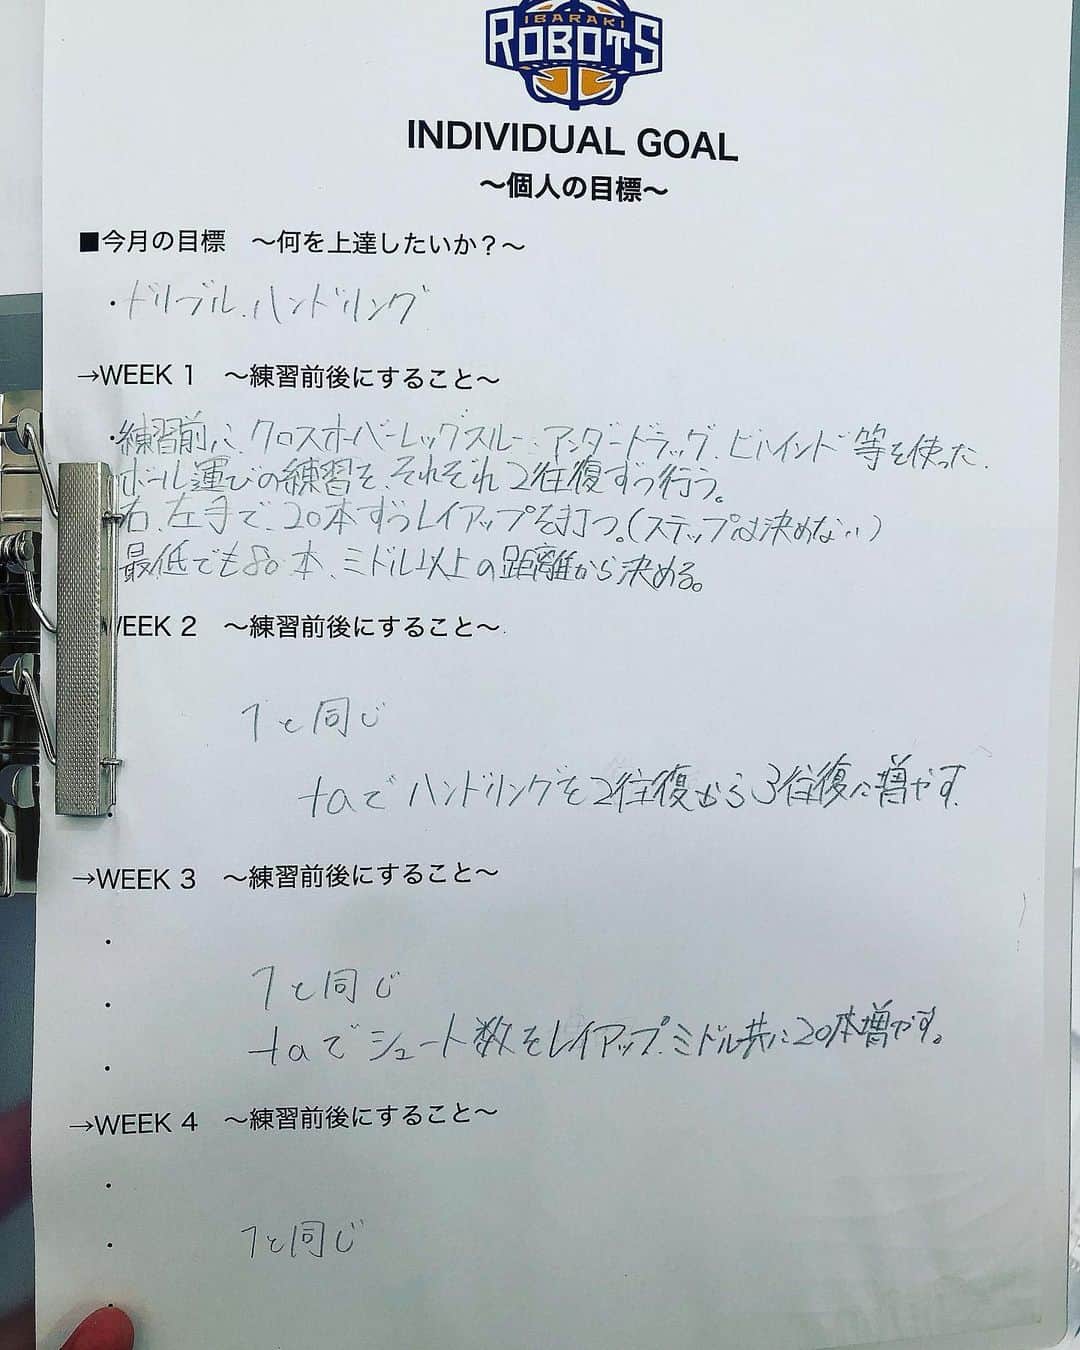 IBARAKI
ROBOTS
INDIVIDUAL GOAL
〜個人の目標〜
■今月の目標　〜何を上達したいか？〜
・ドリブル、ハンドリング
→WEEK 1　〜練習前後にすること〜
・練習前に、クロスオーバー、レッグスルー、アンダードラッグ、ビハインド等を使った、
ボール運びの練習を、それぞれ2往復ずつ行う。
右、左手で、20本ずつレイアップを打つ。(ステップは決めない)
最低でも80本、ミドル以上の距離から決める。
WEEK 2　〜練習前後にすること〜
1と同じ
+aでハンドリングを2往復から3往復に増やす。
→WEEK 3　〜練習前後にすること〜
・
・1と同じ
・+aでシュート数をレイアップ、ミドル共に20本増やす。
→WEEK 4　〜練習前後にすること〜
・
・1と同じ